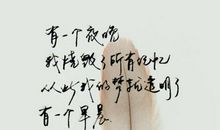 有一个夜晚
我烧毁了所有记忆
从此我的梦就透明了
有一个早晨